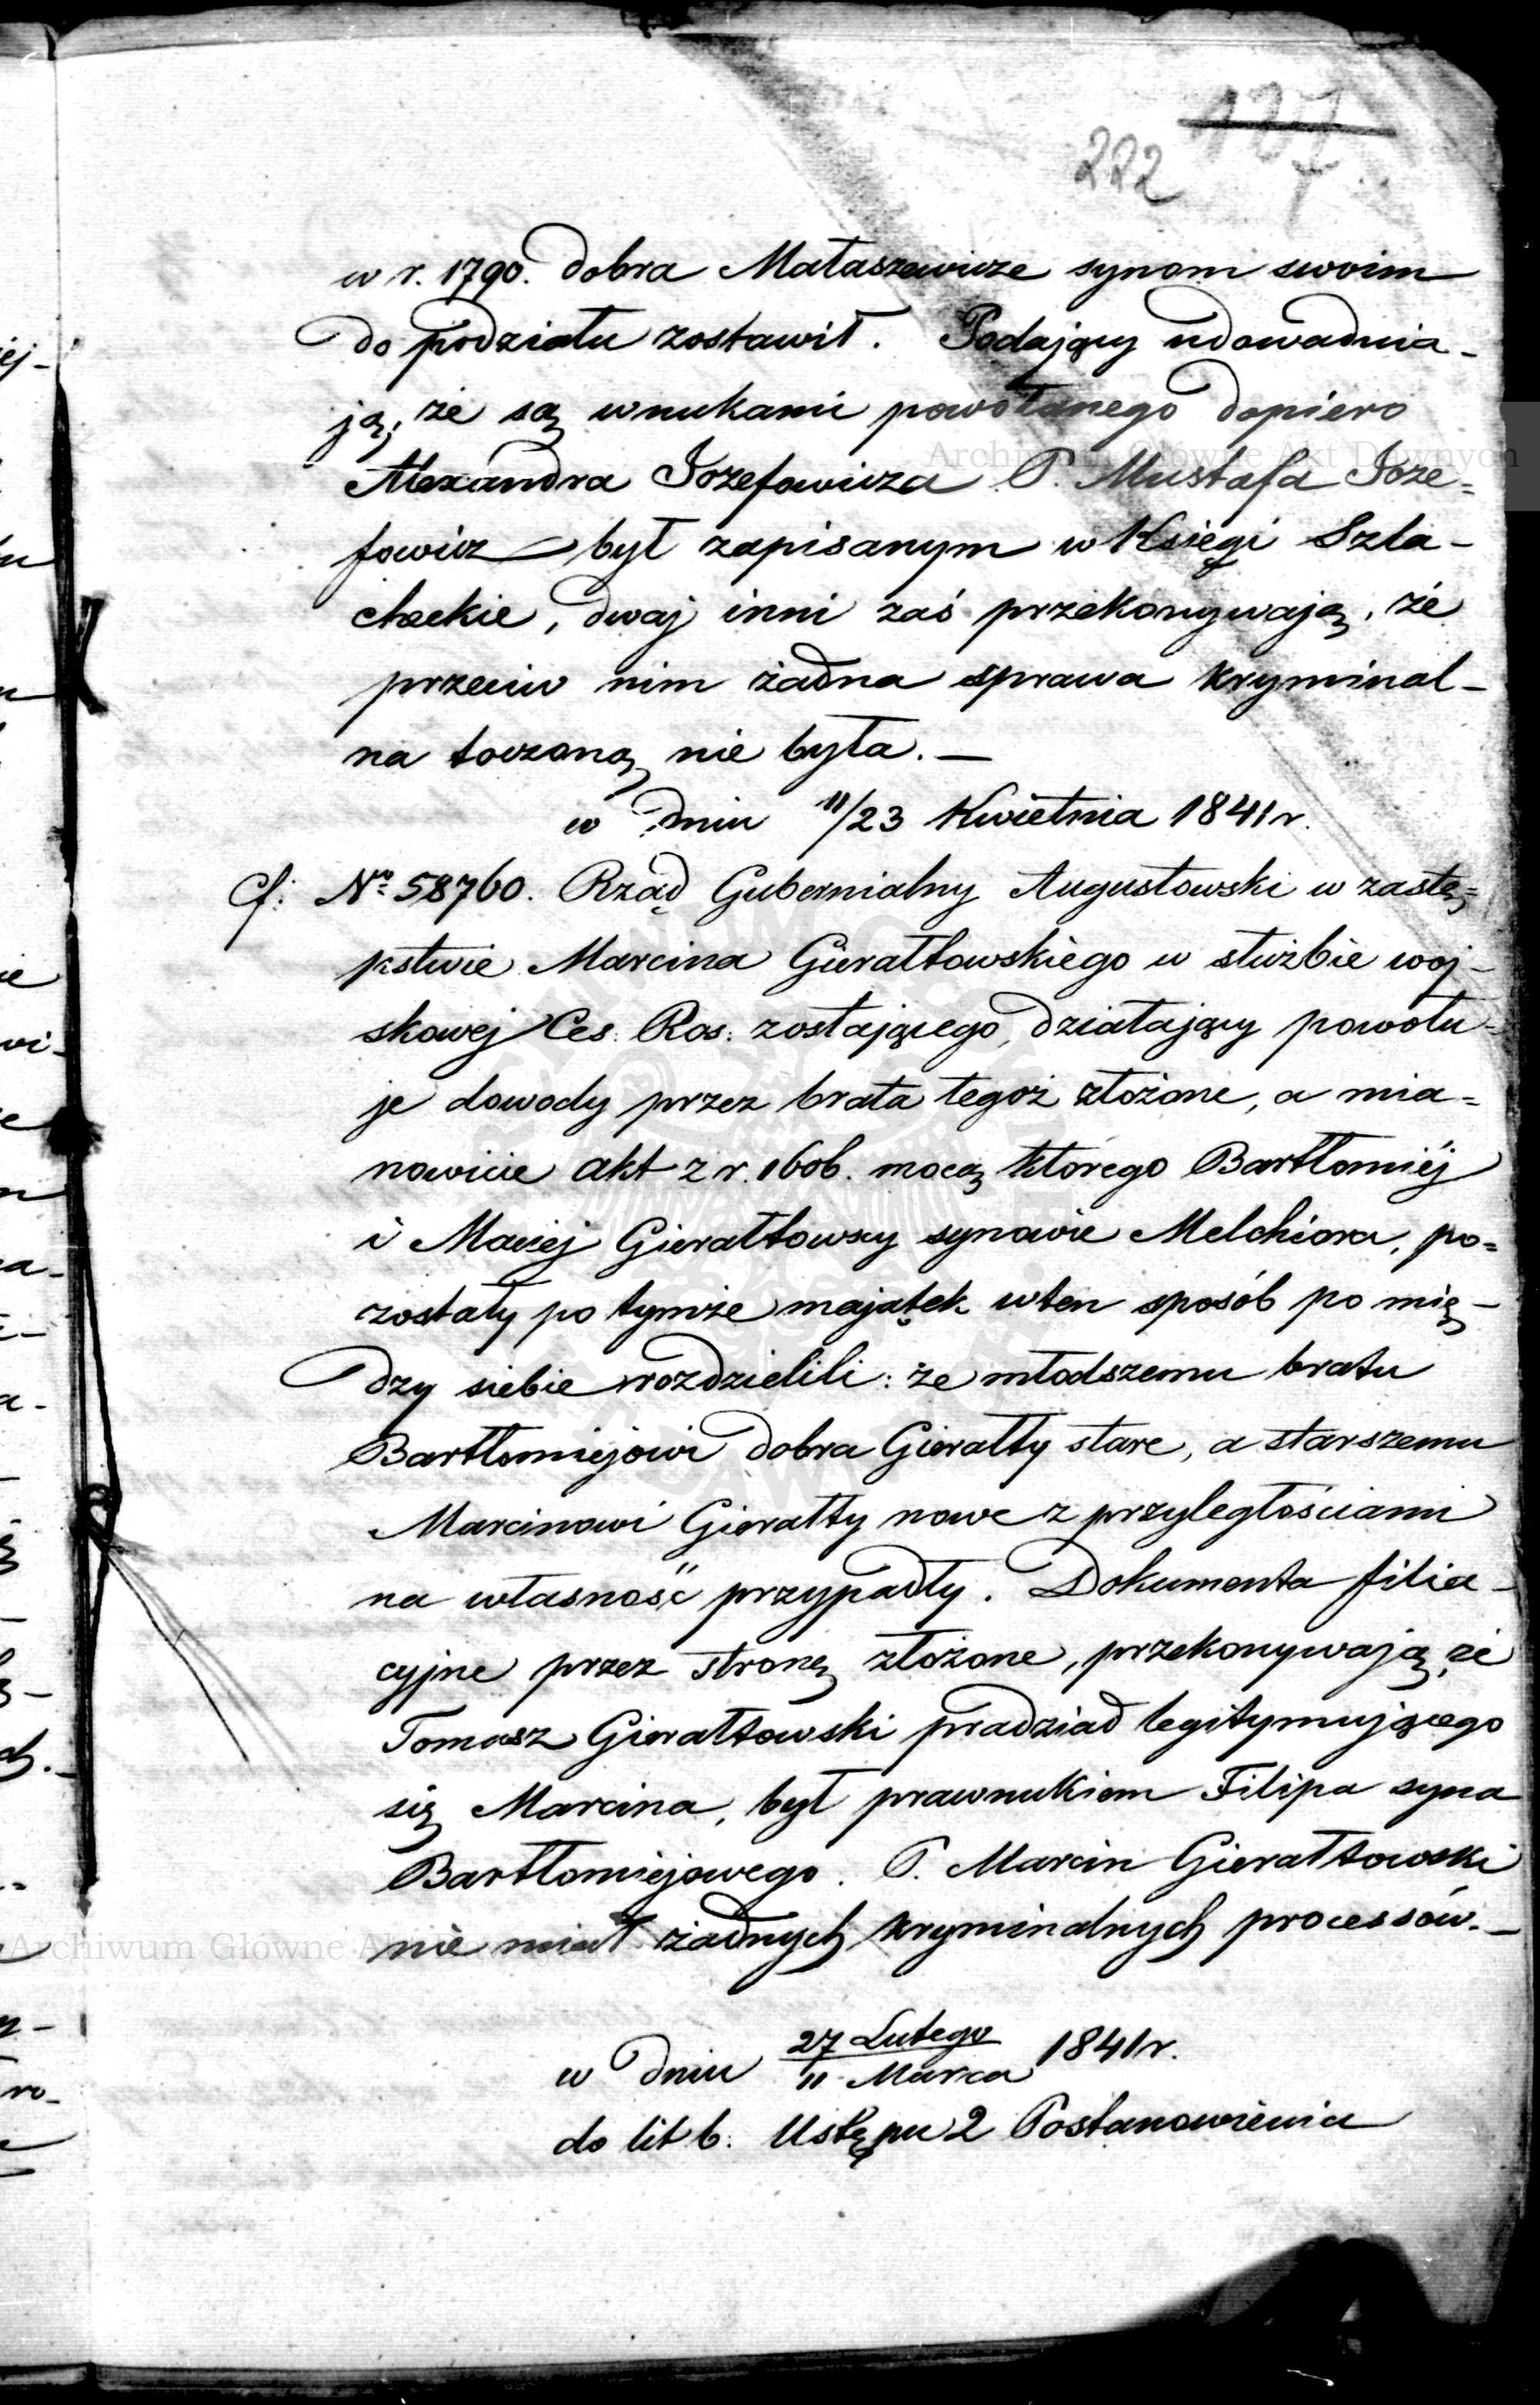 222
w r. 1790. dobra Mataszewicze synom swoim
do podziału zostawił. Podający udowadnia-
ją, że są wnukami powołanego dopiero
Alexandra Jozefowicza P. Mustafa Joze=
fowicz był zapisanym w Księgi Szla-
checkie, dwaj inni zaś przekonywają, że
przeciw nim żadna sprawa kryminal-
na toczoną nie była.—
w dniu 11/23 Kwietnia 1841 r.
Cf: No 58760. Rząd Gubernialny Augustowski w zastę=
pstwie Marcina Gierałtowskiego w służbie woj-
skowej Ces. Ros: zostającego, działający powołu-
je dowody przez brata tegoż złożone, a mia=
nowicie akt z r. 1606. mocą którego Bartłomiéj
i Maciej Gierałtowscy synowie Melchiora, po=
zostały po tymże majątek w ten sposób po mię-
dzy siebie rozdzielili: że młodszemu bratu
Bartłomiejowi dobra Gierałty stare, a starszemu
Marcinowi Gierałty nowe z przyległościami
na własność przypadły. Dokumenta filia-
cyjne przez stronę złożone, przekonywają, że
Tomasz Gierałtowski pradziad legitymującego
się Marcina, był prawnukiem Filipa syna
Bartłomiejowego. P. Marcin Gierałtowski
nie miał żadnych kryminalnych processów.—
w dniu 27 Lutego/11 Marca 1841 r.
do lit b. Ustępu 2 Postanowienia
Archiwum Główne Akt Dawnych